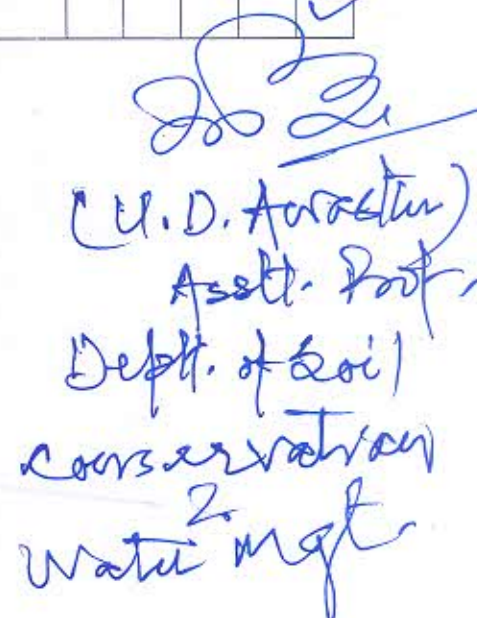 (U.D. Awasthi)
Asstt. Prof.
Deptt. of Soil
Conservation
&
Water Mgt.